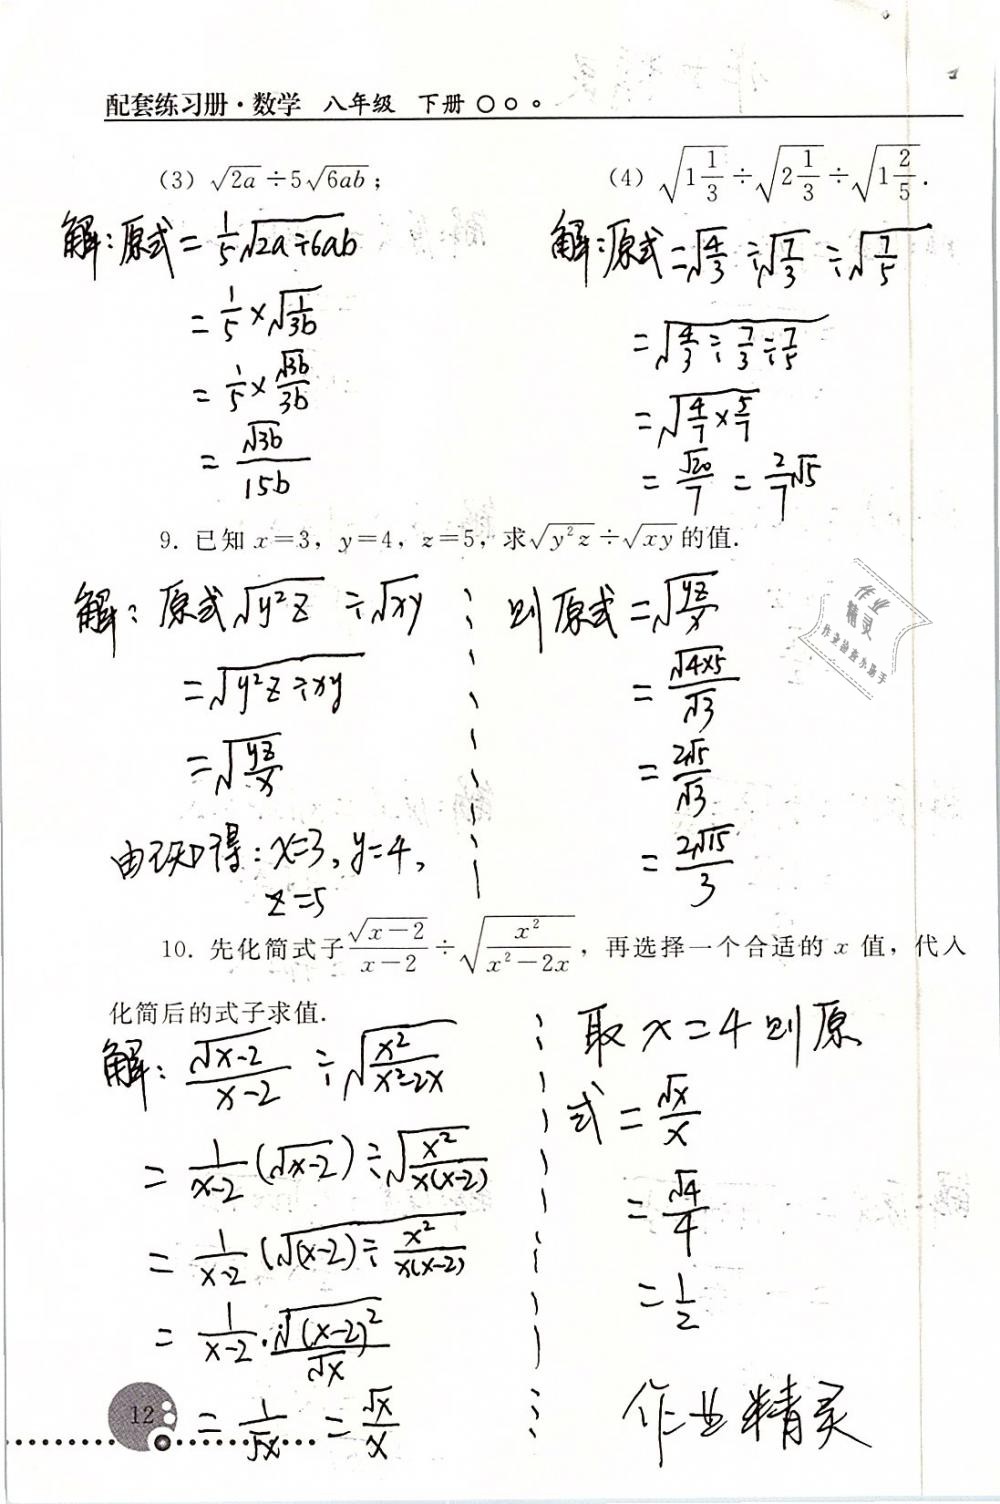 配套练习册·数学 八年级 下册
(3) √(2a) ÷ 5√(6ab);
解:原式 = 1/5 √(2a÷6ab)
= 1/5 × √(1/3b)
= 1/5 × √(3b)/3b
= √(3b)/15b
(4) √(1 1/3) ÷ √(2 1/3) ÷ √(1 2/5).
解:原式 = √(4/3) ÷ √(7/3) ÷ √(7/5)
= √(4/3 ÷ 7/3 ÷ 7/5)
= √(4/7 × 5/7)
= √20/7 = 2/7 √5
9. 已知 x=3, y=4, z=5, 求√(y²z) ÷ √(xy) 的值.
解: 原式 √(y²z) ÷ √(xy)
= √(y²z ÷ xy)
= √(yz/x)
由已知得: x=3, y=4,
z=5
则原式 = √(yz/x)
= √(4×5)/√3
= 2√5/√3
= 2√15/3
作业
精灵
作业检查小助手
10. 先化简式子 √(x-2)/(x-2) ÷ √(x²/(x²-2x)), 再选择一个合适的 x 值, 代入
化简后的式子求值.
解: √(x-2)/(x-2) ÷ √(x²/(x²-2x))
= 1/(x-2) (√(x-2)) ÷ √(x²/(x(x-2)))
= 1/(x-2) (√((x-2) ÷ x²/(x(x-2)))
= 1/(x-2) · √((x-2)²)/√x
= 1/√x = √x/x
取 x=4 则原
式 = √x/x
= √4/4
= 1/2
作业精灵
12